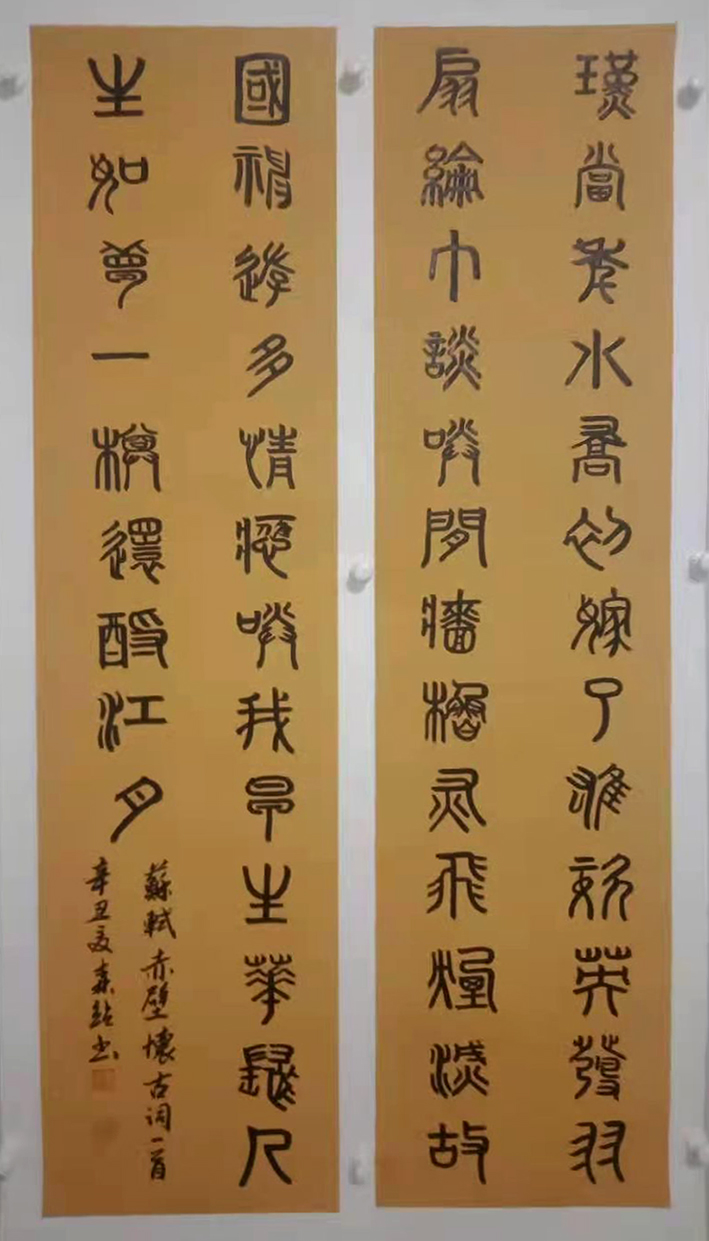 瑾當年小喬初嫁了雄姿英發羽
扇綸巾談咲間牆櫓灰飛煙滅故
國神遊多情應咲我早生華髮人
生如夢一樽還酹江月
蘇軾赤壁懷古词一首
辛丑夏森銘書